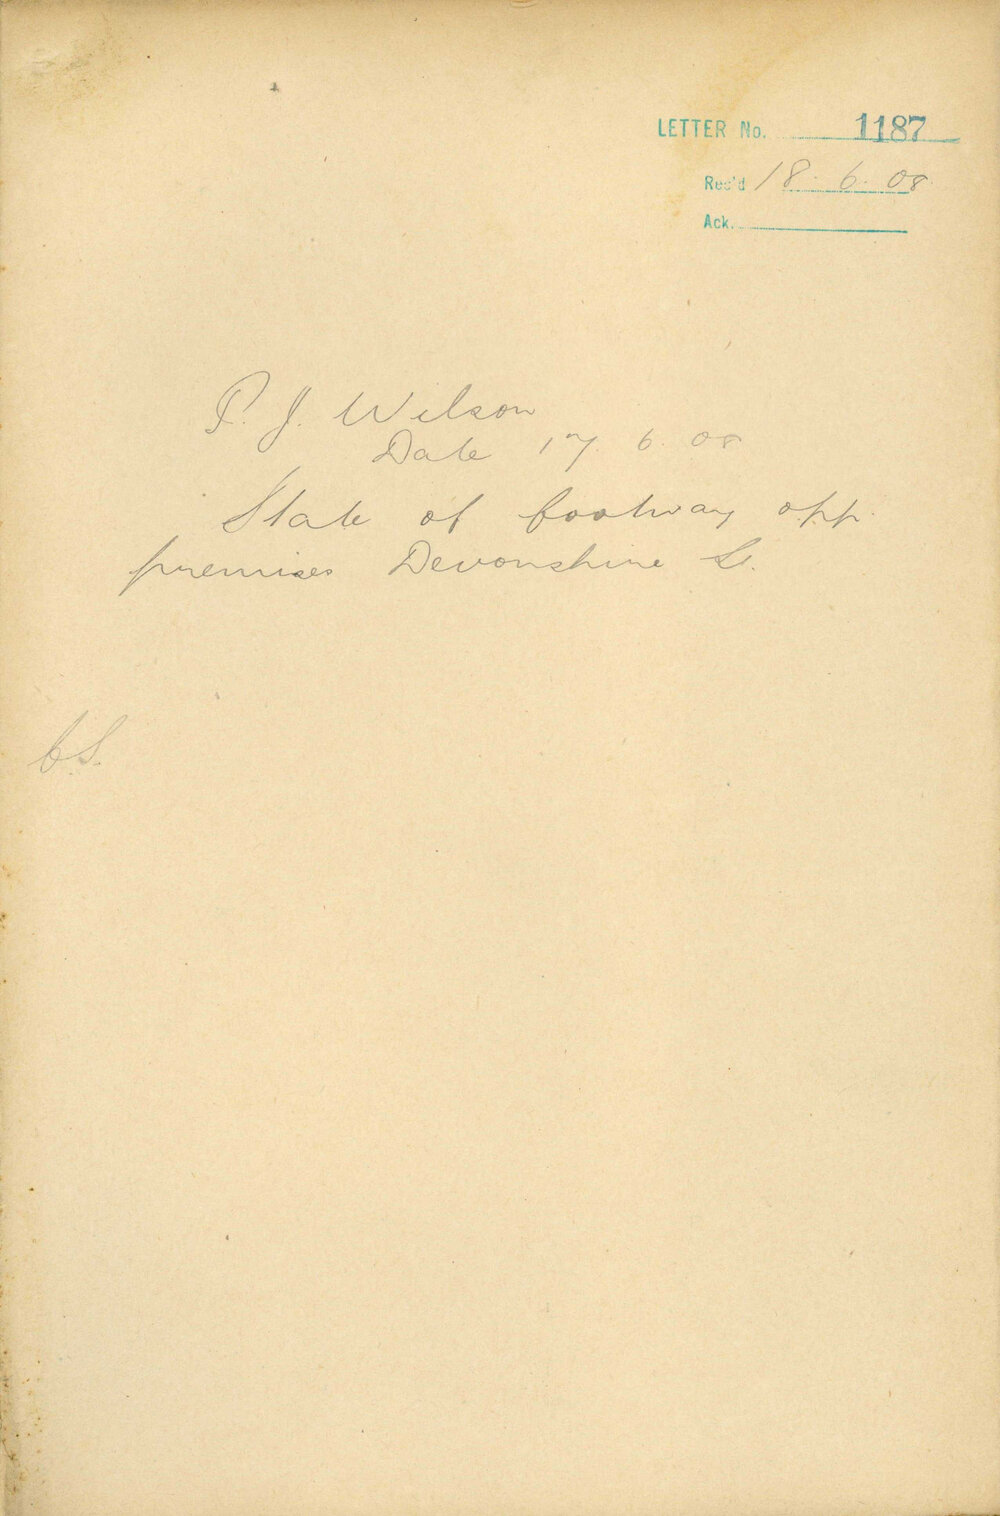 LETTER No. 1187
Rec'd 18. 6. 08
Ack.
P. J. Wilson
Date 17. 6. 08
State of footway opp.
premises Devonshire St.
C.S.